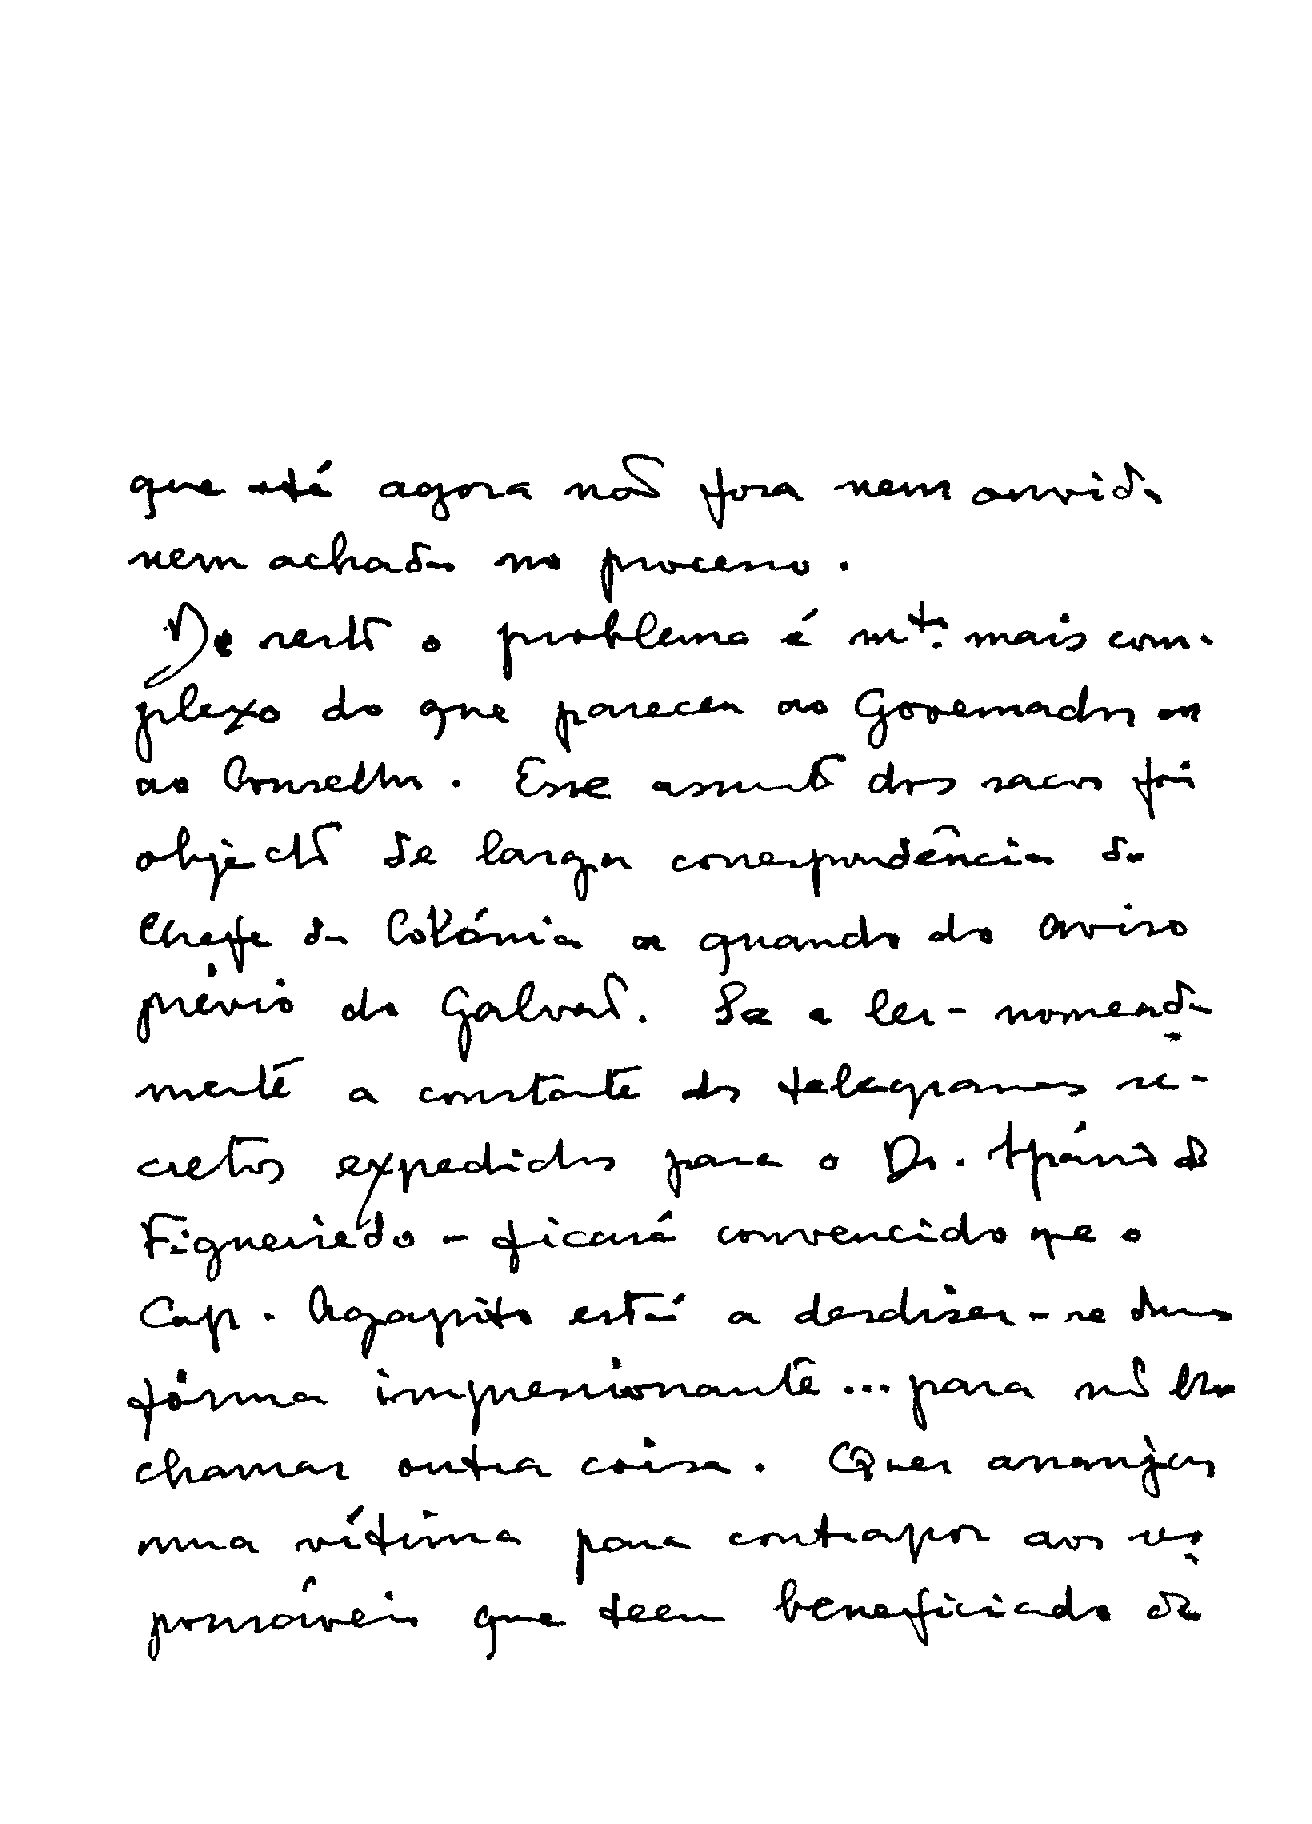 que até agora não fora nem ouvido
nem achado no processo.
De resto o problema é mto. mais com-
plexo do que pareceu ao Governador ou
ao Conselho. Esse assunto dos sacos foi
objecto de larga correspondência do
Chefe da Colónia a quando do aviso
prévio do Galvão. Se a ler - nomeada-
mente a constante dos telegramas se-
cretos expedidos para o Dr.
Figueiredo - ficará convencido que o
Cap. Agapito está a desdizer-se duma
fórma impressionante... para não lhe
chamar outra coisa. Quer arranjar
uma vítima para contrapor aos res-
ponsáveis que teem beneficiado da